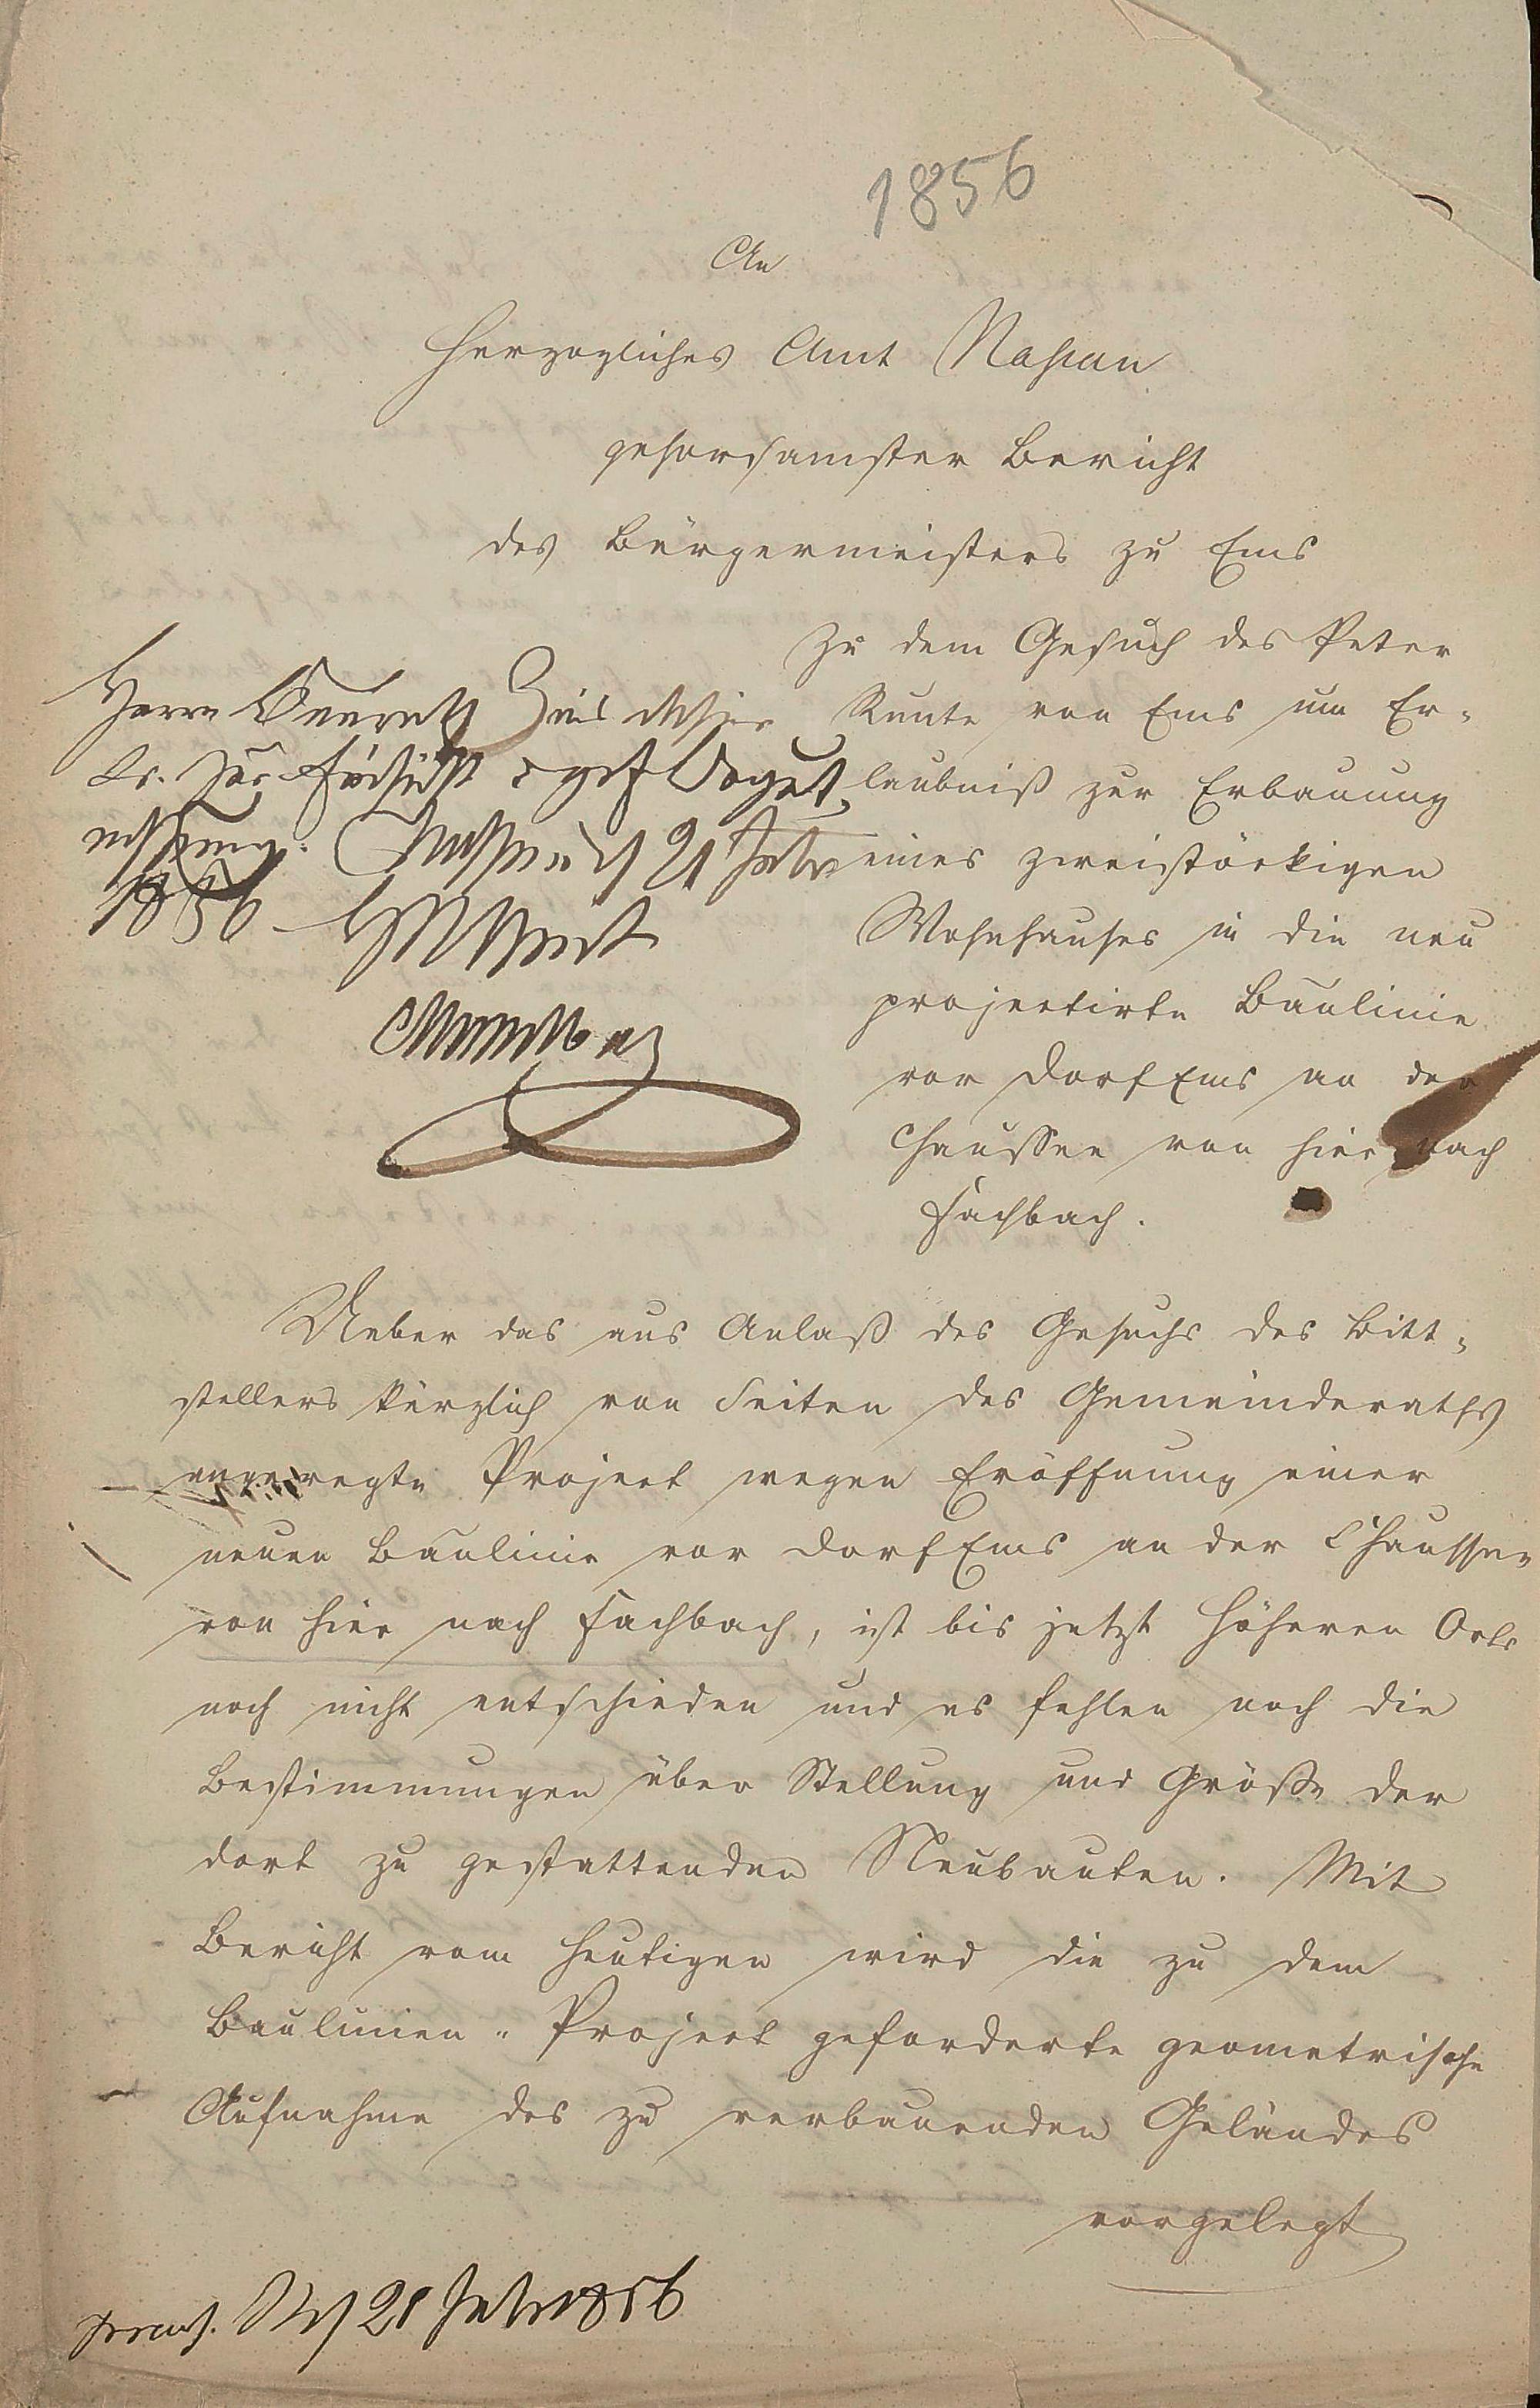 1856
An
Herzogliches Amt Nassau
gehorsamster Bericht
des Bürgermeisters zu Ems
Zu dem Gesuch des Peter
von Ems um Er-
laubniß zur Erbauung
eines zweistöckigen
Wohnhauses in die neu
projectirte Baulinie
vor Dorf Ems an der
Chaussee von hier nach
Fachbach.
Herrn
zur
21
1856
Ueber das aus Anlaß des Gesuchs des Bitt-
stellers kürzlich von Seiten des Gemeinderaths
angeregte Project wegen Eröffnung einer
neuen Baulinie vor Dorf Ems an der Chaussee
von hier nach Fachbach, ist bis jetzt höheren Orts
noch nicht entschieden und es fehlen noch die
Bestimmungen über Stellung und Größe der
dort zu gestattenden Neubauten. Mit
Bericht vom Heutigen wird die zu dem
Baulinien-Project geforderte geometrische
Aufnahme des zu verbauenden Geländes
vorgelegt
praes. 21 Febr 1856